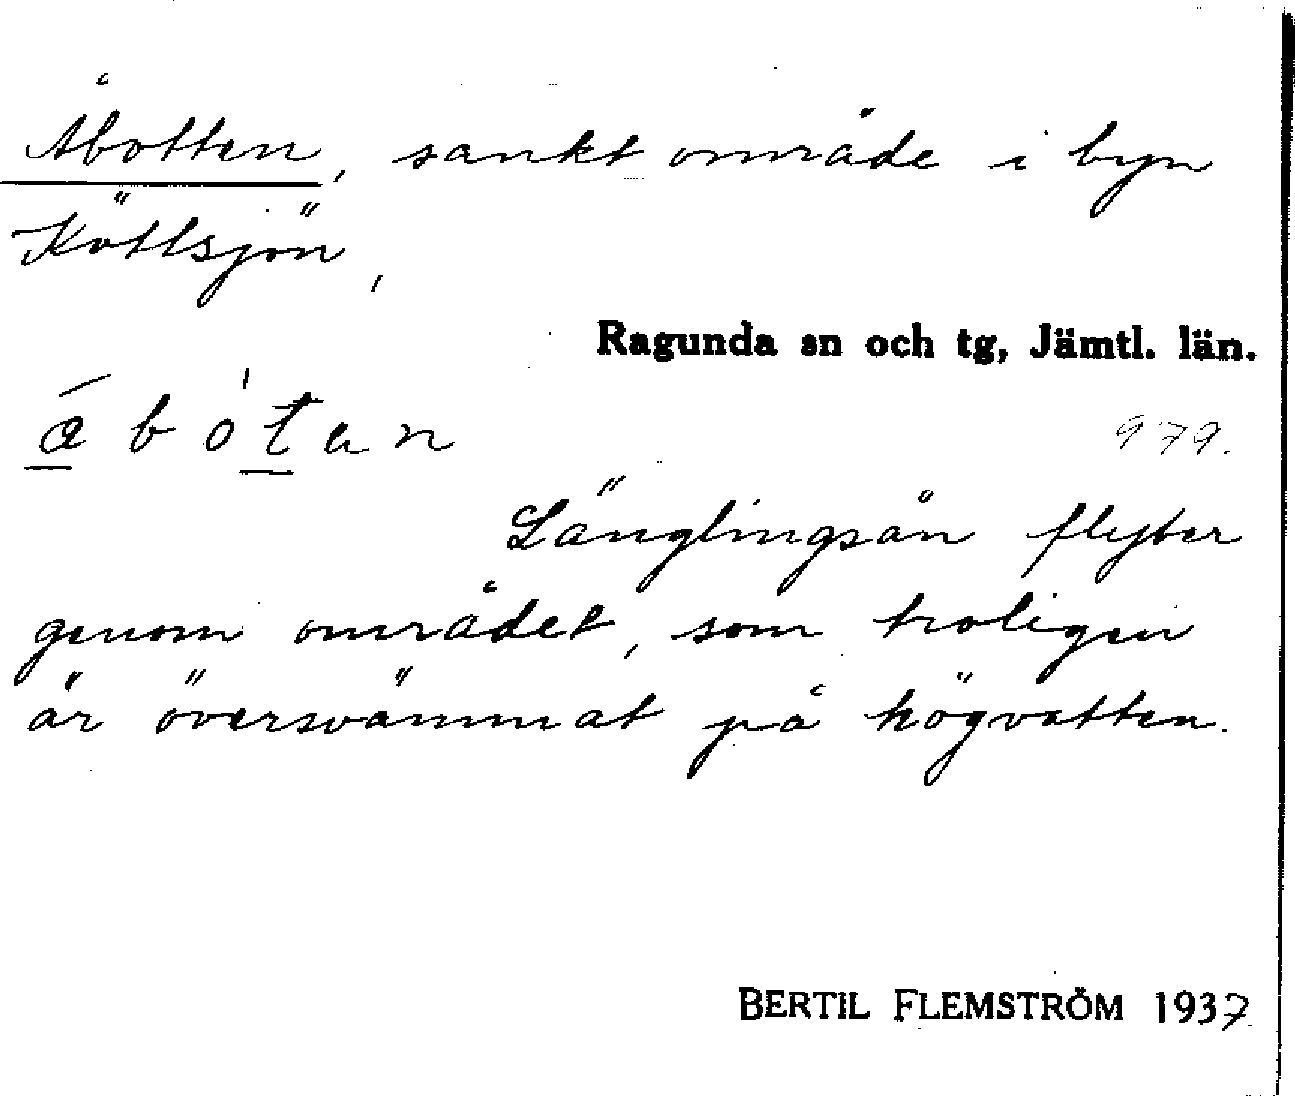 Åbotten, sankt område i byn
Köttsjön,
Ragunda sn och tg, Jämtl. län.
979.
Länglingsån flyter
genom området, som troligen
är översvämmat på högvatten.
BERTIL FLEMSTRÖM 1937